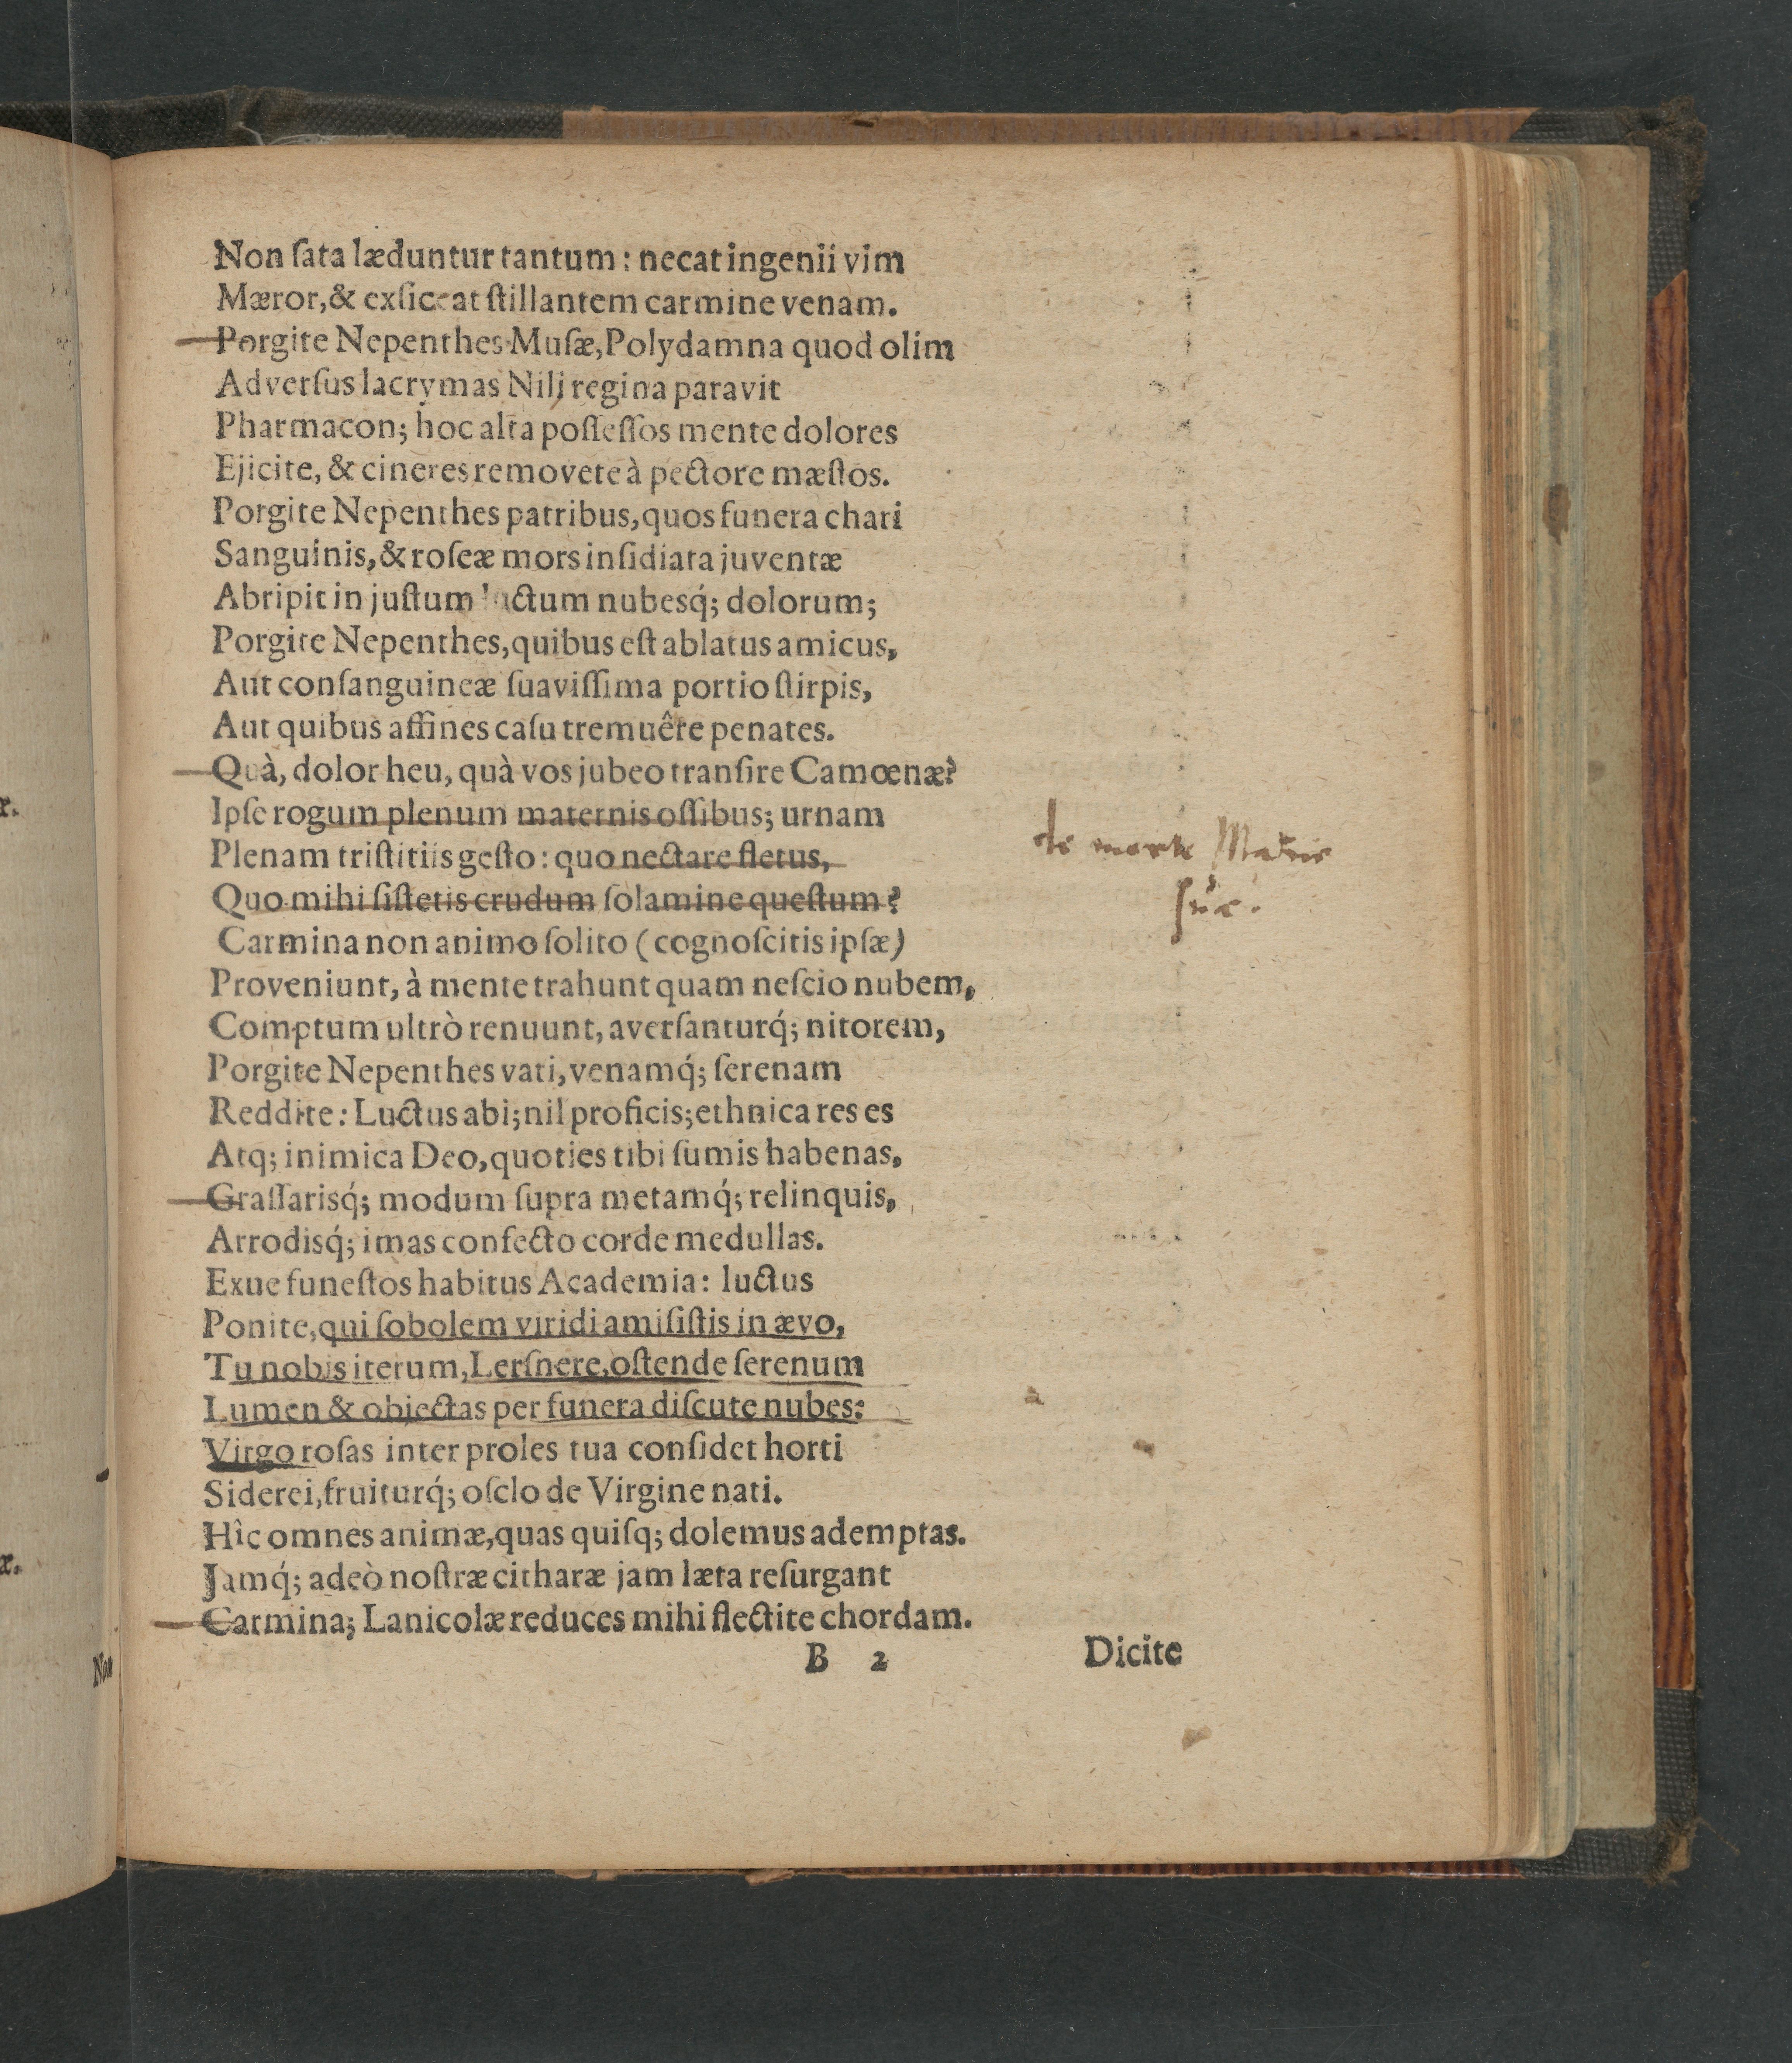 Non ſata læduntur tantum: necat ingenii vim
Mæror, & exſiccat ſtillantem carmine venam.
Porgite Nepenthes Muſæ, Polydamna quod olim
Adverſus lacrymas Nili regina paravit
Pharmacon; hoc alta poſſeſſos mente dolores
Ejicite, & cineres removete à pectore mæſtos.
Porgite Nepenthes patribus, quos funera chari
Sanguinis, & roſeæ mors inſidiata juventæ
Abripit in juſtum luctum nubesq́; dolorum;
Porgite Nepenthes, quibus eſt ablatus amicus,
Aut conſanguineæ ſuaviſſima portio ſtirpis,
Aut quibus affines caſu tremuêre penates.
Quà, dolor heu, quà vos jubeo tranſire Camœnæ?
Ipſe rogum plenum maternis oſſibus; urnam
Plenam triſtitiis geſto: quo nectare fletus,
de morte Matris
Quo mihi ſiſtetis crudum ſolamine queſtum?
ſuæ.
Carmina non animo ſolito (cognoſcitis ipſæ)
Proveniunt, à mente trahunt quam neſcio nubem,
Comptum ultrò renuunt, averſanturq́; nitorem,
Porgite Nepenthes vati, venamq́; ſerenam
Reddite: Luctus abi; nil proficis; ethnica res es
Atq; inimica Deo, quoties tibi ſumis habenas,
Graſſarisq́; modum ſupra metamq́; relinquis,
Arrodisq́; imas confecto corde medullas.
Exue funeſtos habitus Academia: luctus
Ponite, qui ſobolem viridi amiſiſtis in ævo,
Tu nobis iterum, Lerſnere, oſtende ſerenum
Lumen & objectas per funera diſcute nubes:
Virgo roſas inter proles tua conſidet horti
Siderei, fruiturq́; oſclo de Virgine nati.
Hîc omnes animæ, quas quiſq; dolemus ademptas.
Jamq́; adeò noſtræ citharæ jam læta reſurgant
Carmina; Lanicolæ reduces mihi flectite chordam.
B 2 Dicite
Non